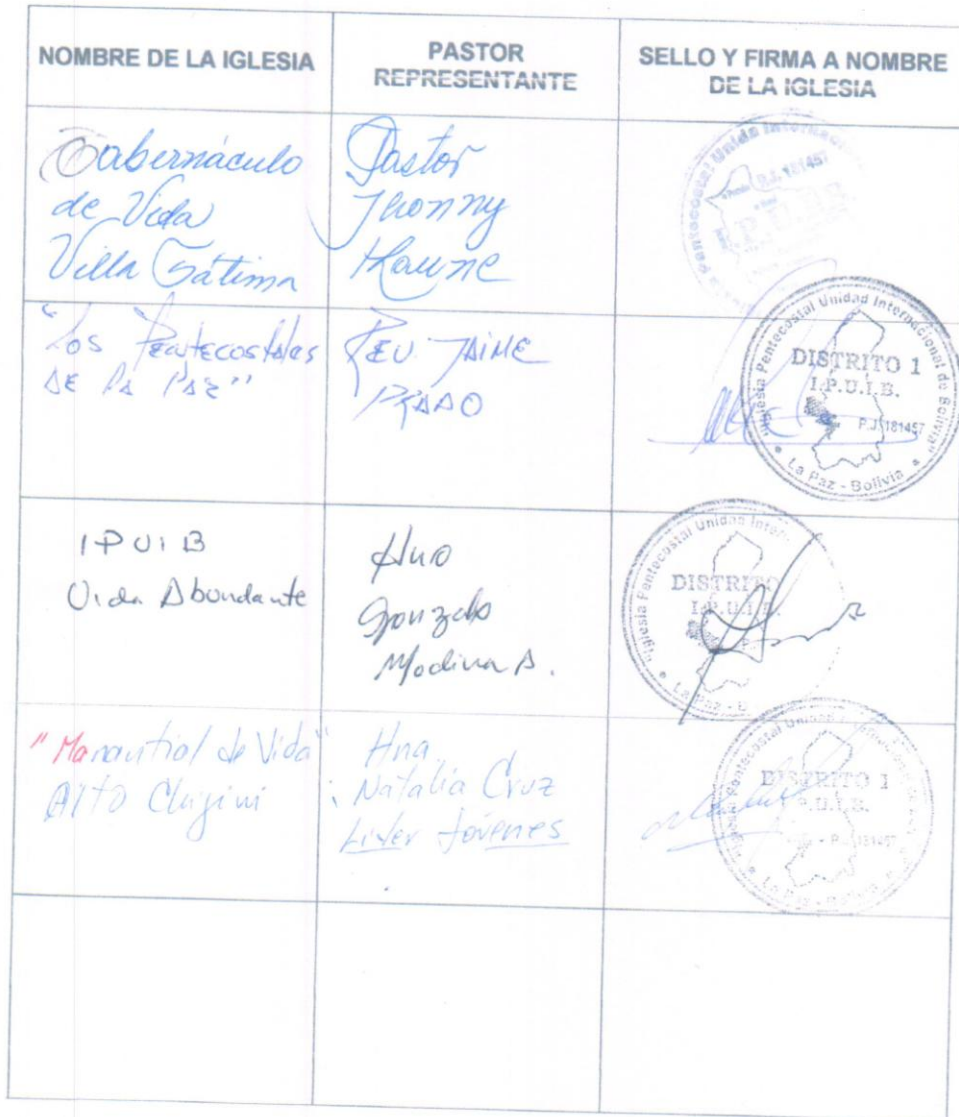 NOMBRE DE LA IGLESIA
PASTOR
REPRESENTANTE
SELLO Y FIRMA A NOMBRE
DE LA IGLESIA
Tabernáculo
de Vida
Villa Fátima
Pastor
Jhonny
Unida Internac
P.J. 181457
I.P.U.I.B.
"Los Pentecostales
DE LA PAZ"
REV. JAIME
PRADO
Iglesia Pentecostal Unidad Internacional de Bolivia"
DISTRITO 1
I.P.U.I.B.
P.J. 181457
La Paz - Bolivia
IPUIB
Vida Abundante
Hno
Gonzalo
Medina A.
Iglesia Pentecostal Unidad Inter
DISTRITO
I.P.U.I.B.
La Paz - B
"Manantial de Vida"
Alto Chijini
Hna
Natalia Cruz
Lider Jóvenes
DISTRITO 1
I.P.U.I.B.